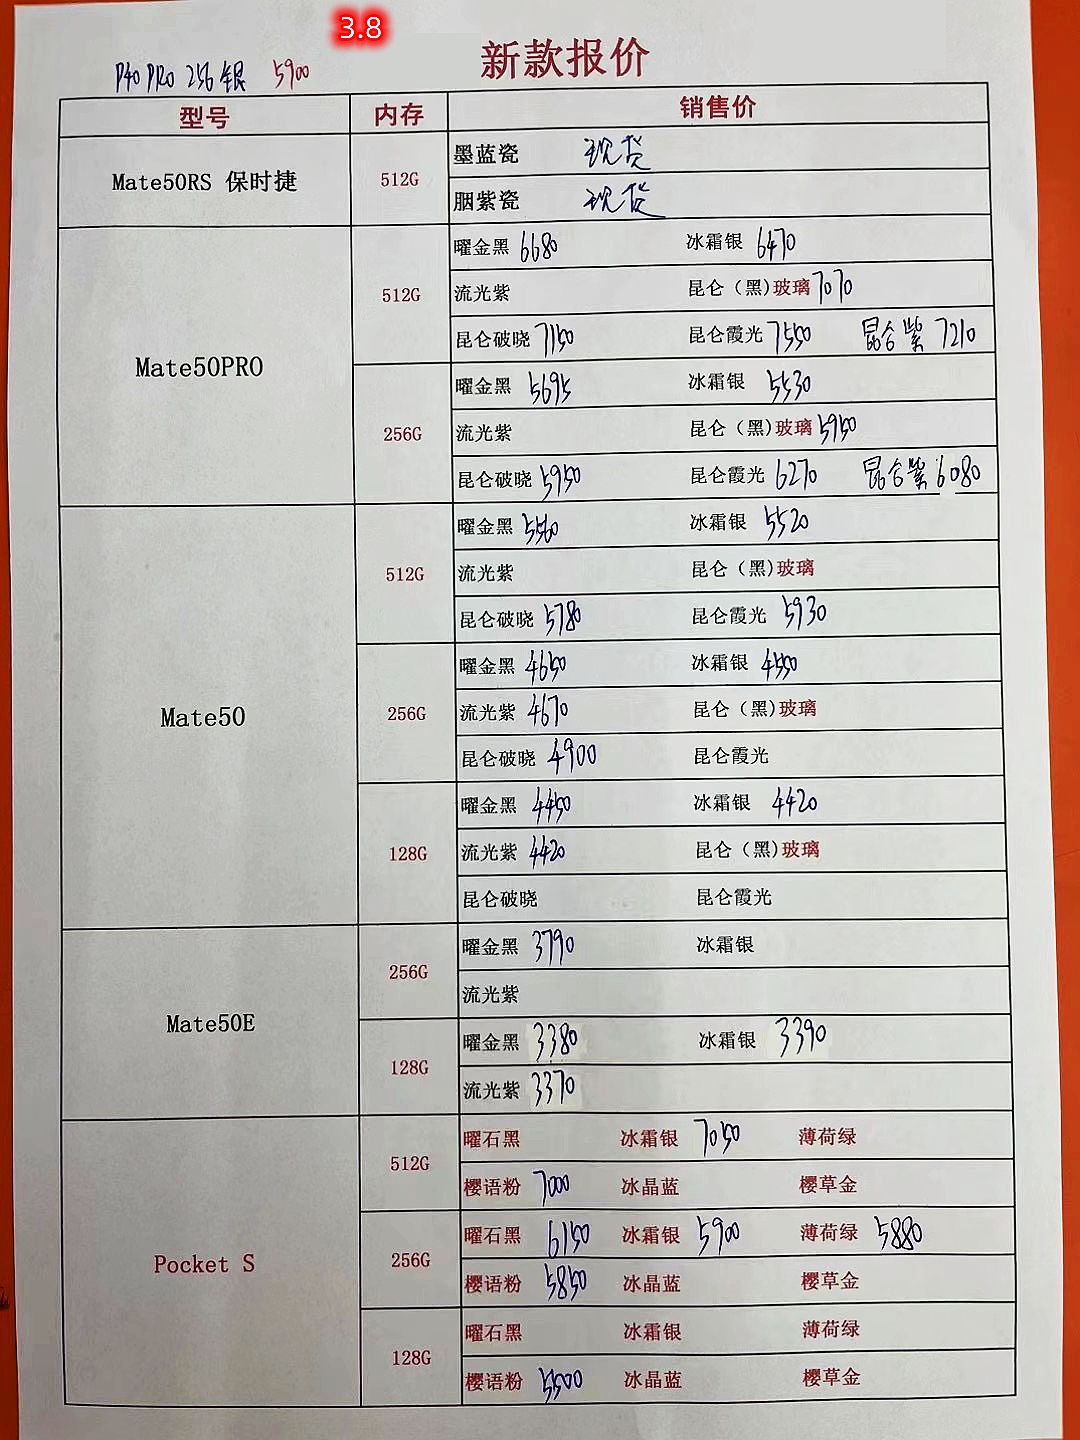 3.8
P40 PRO 256 银 5900
新款报价
型号 内存 销售价
Mate50RS 保时捷 512G
墨蓝瓷 现货
胭紫瓷 现货
Mate50PRO
512G
曜金黑 6680 冰霜银 6470
流光紫 昆仑（黑)玻璃 7070
昆仑破晓 7150 昆仑霞光 7550 昆仑紫 7210
256G
曜金黑 5695 冰霜银 5530
流光紫 昆仑（黑)玻璃 5950
昆仑破晓 5950 昆仑霞光 6270 昆仑紫 6080
Mate50
512G
曜金黑 5560 冰霜银 5520
流光紫 昆仑（黑)玻璃
昆仑破晓 5780 昆仑霞光 5930
256G
曜金黑 4650 冰霜银 4550
流光紫 4670 昆仑（黑)玻璃
昆仑破晓 4900 昆仑霞光
128G
曜金黑 4450 冰霜银 4420
流光紫 4420 昆仑（黑)玻璃
昆仑破晓 昆仑霞光
Mate50E
256G
曜金黑 3790 冰霜银
流光紫
128G
曜金黑 3380 冰霜银 3390
流光紫 3370
Pocket S
512G
曜石黑 冰霜银 7050 薄荷绿
樱语粉 7000 冰晶蓝 樱草金
256G
曜石黑 6150 冰霜银 5900 薄荷绿 5880
樱语粉 5850 冰晶蓝 樱草金
128G
曜石黑 冰霜银 薄荷绿
樱语粉 5500 冰晶蓝 樱草金